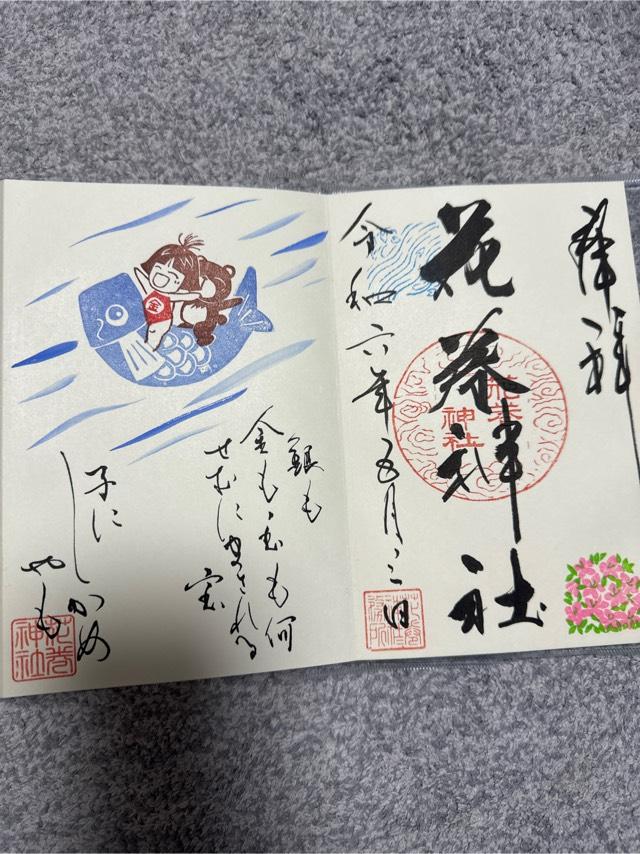 奉拝
花巻神社
花巻神社
令和六年五月三日
金
銀も
金も玉も何
せむにまされる
宝
子に
しかめ
やも
花巻神社